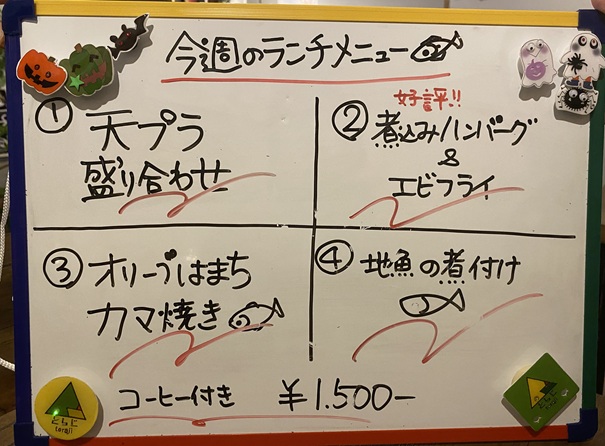 今週のランチメニュー
① 天プラ
盛り合わせ
好評!!
② 煮込みハンバーグ
&
エビフライ
③ オリーブはまち
カマ焼き
④ 地魚の煮付け
コーヒー付き ¥1.500-
とらじ
toraji